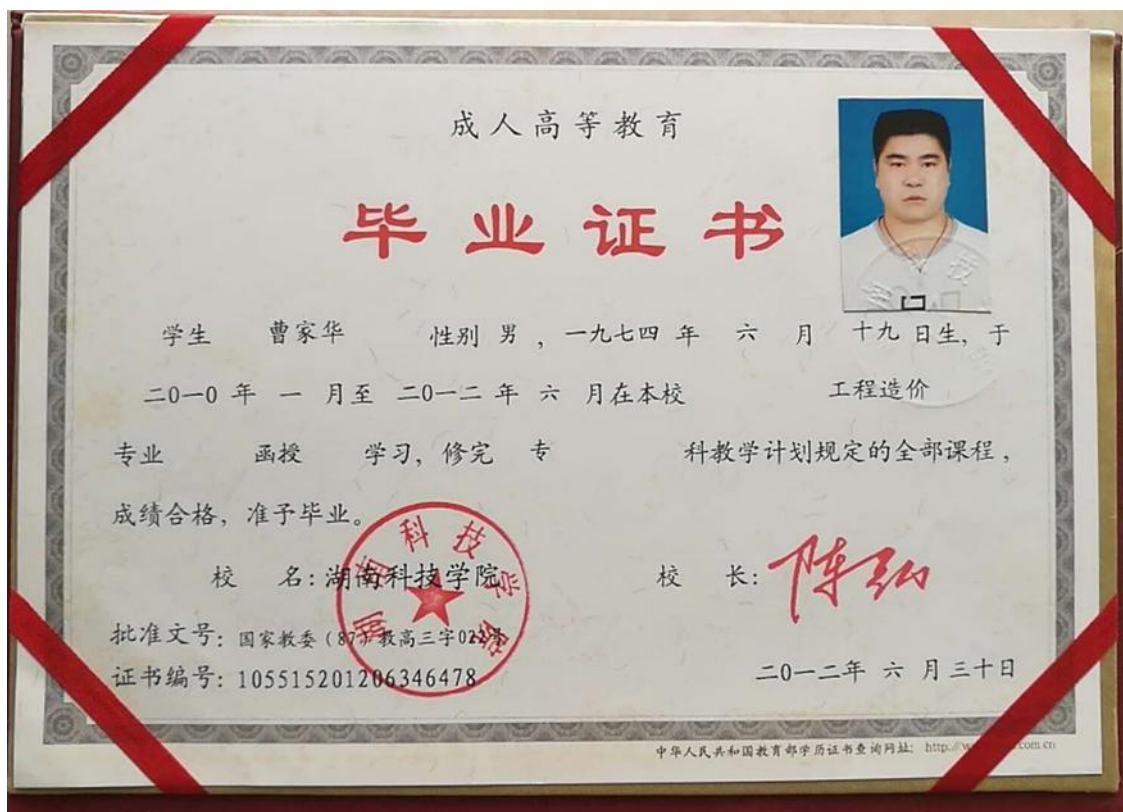 成人高等教育
毕业证书
学生 曹家华 性别 男，一九七四 年 六 月 十九 日生，于
二0一0 年 一 月至 二0一二 年 六 月在本校 工程造价
专业 函授 学习，修完 专 科教学计划规定的全部课程，
成绩合格，准予毕业。
校 名：湖南科技学院
校 长：陈弘
批准文号：国家教委（87）教高三字022号
证书编号：105515201206346478
二0一二年 六 月三十日
湖南科技学院
中华人民共和国教育部学历证书查询网址： http://w com.cn